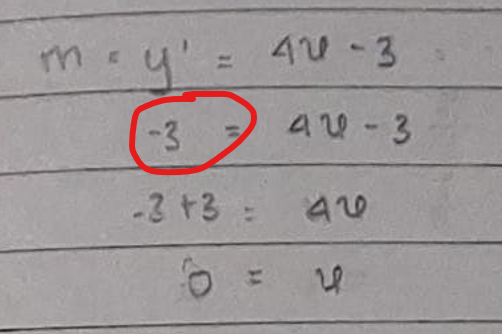 m = y' = 4x - 3
-3 = 4x - 3
-3 + 3 = 4x
0 = x